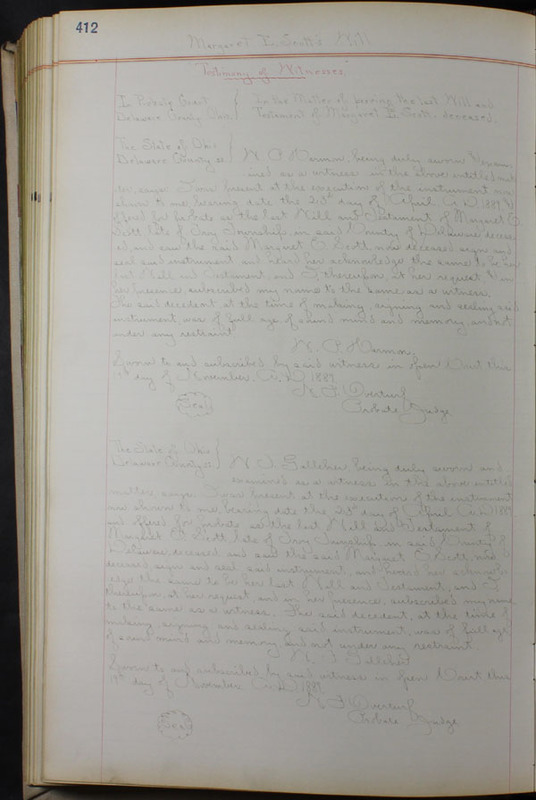 412
Margaret E. Scott's Will
Testimony of Witnesses
In Probate Court
Delaware County, Ohio
In the Matter of proving the last Will and
Testament of Margaret E. Scott, deceased.
The State of Ohio
Delaware County ss
W. P. Harmon, being duly sworn & exam-
ined as a witness in the above entitled mat-
ter, says: I was present at the execution of the instrument now
shown to me, bearing date the 23d day of April A.D. 1889 &
offered for probate as the last Will and Testament of Margaret E.
Scott late of Township, in said County of Delaware deceas-
ed, and saw the said Margaret E. Scott, now deceased sign and
seal said instrument and heard her acknowledge the same to be her
last Will and Testament, and I thereupon, at her request, & in
her presence, subscribed my name to the same as a witness.
The said decedent at the time of making, signing and sealing said
instrument, was of full age of sound mind and memory, and not
under any restraint.
W. P. Harmon,
Sworn to and subscribed by said witness in open Court this
day of November, A.D. 1889
Probate Judge
Seal
The State of Ohio
Delaware County ss
being duly sworn and
examined as a witness in the above entitled
matter, says: I was present at the execution of the instrument
now shown to me, bearing date the 23d day of April A.D. 1889
and offered for probate as the last Will and Testament of
Margaret E. Scott, late of Township in said County of
Delaware, deceased and saw the said Margaret E. Scott, now de-
ceased sign and seal said instrument, and heard her acknowl-
edge the same to be her last Will and Testament, and I
thereupon, at her request, and in her presence, subscribed my name
to the same as a witness. The said decedent, at the time of
making, signing and sealing said instrument, was of full age
of sound mind and memory, and not under any restraint
Sworn to and subscribed by said witness in open Court this
19th day of November A.D. 1889
Probate Judge
Seal